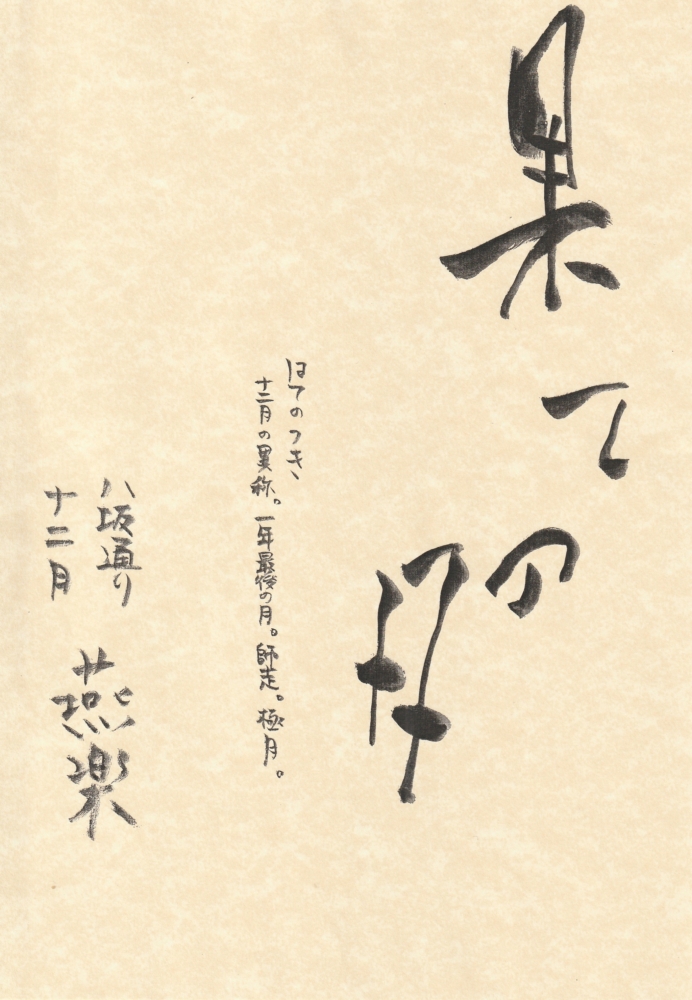 果ての月
はてのつき
十二月の異称。一年最後の月。師走。極月。
八坂通り
十二月
燕楽